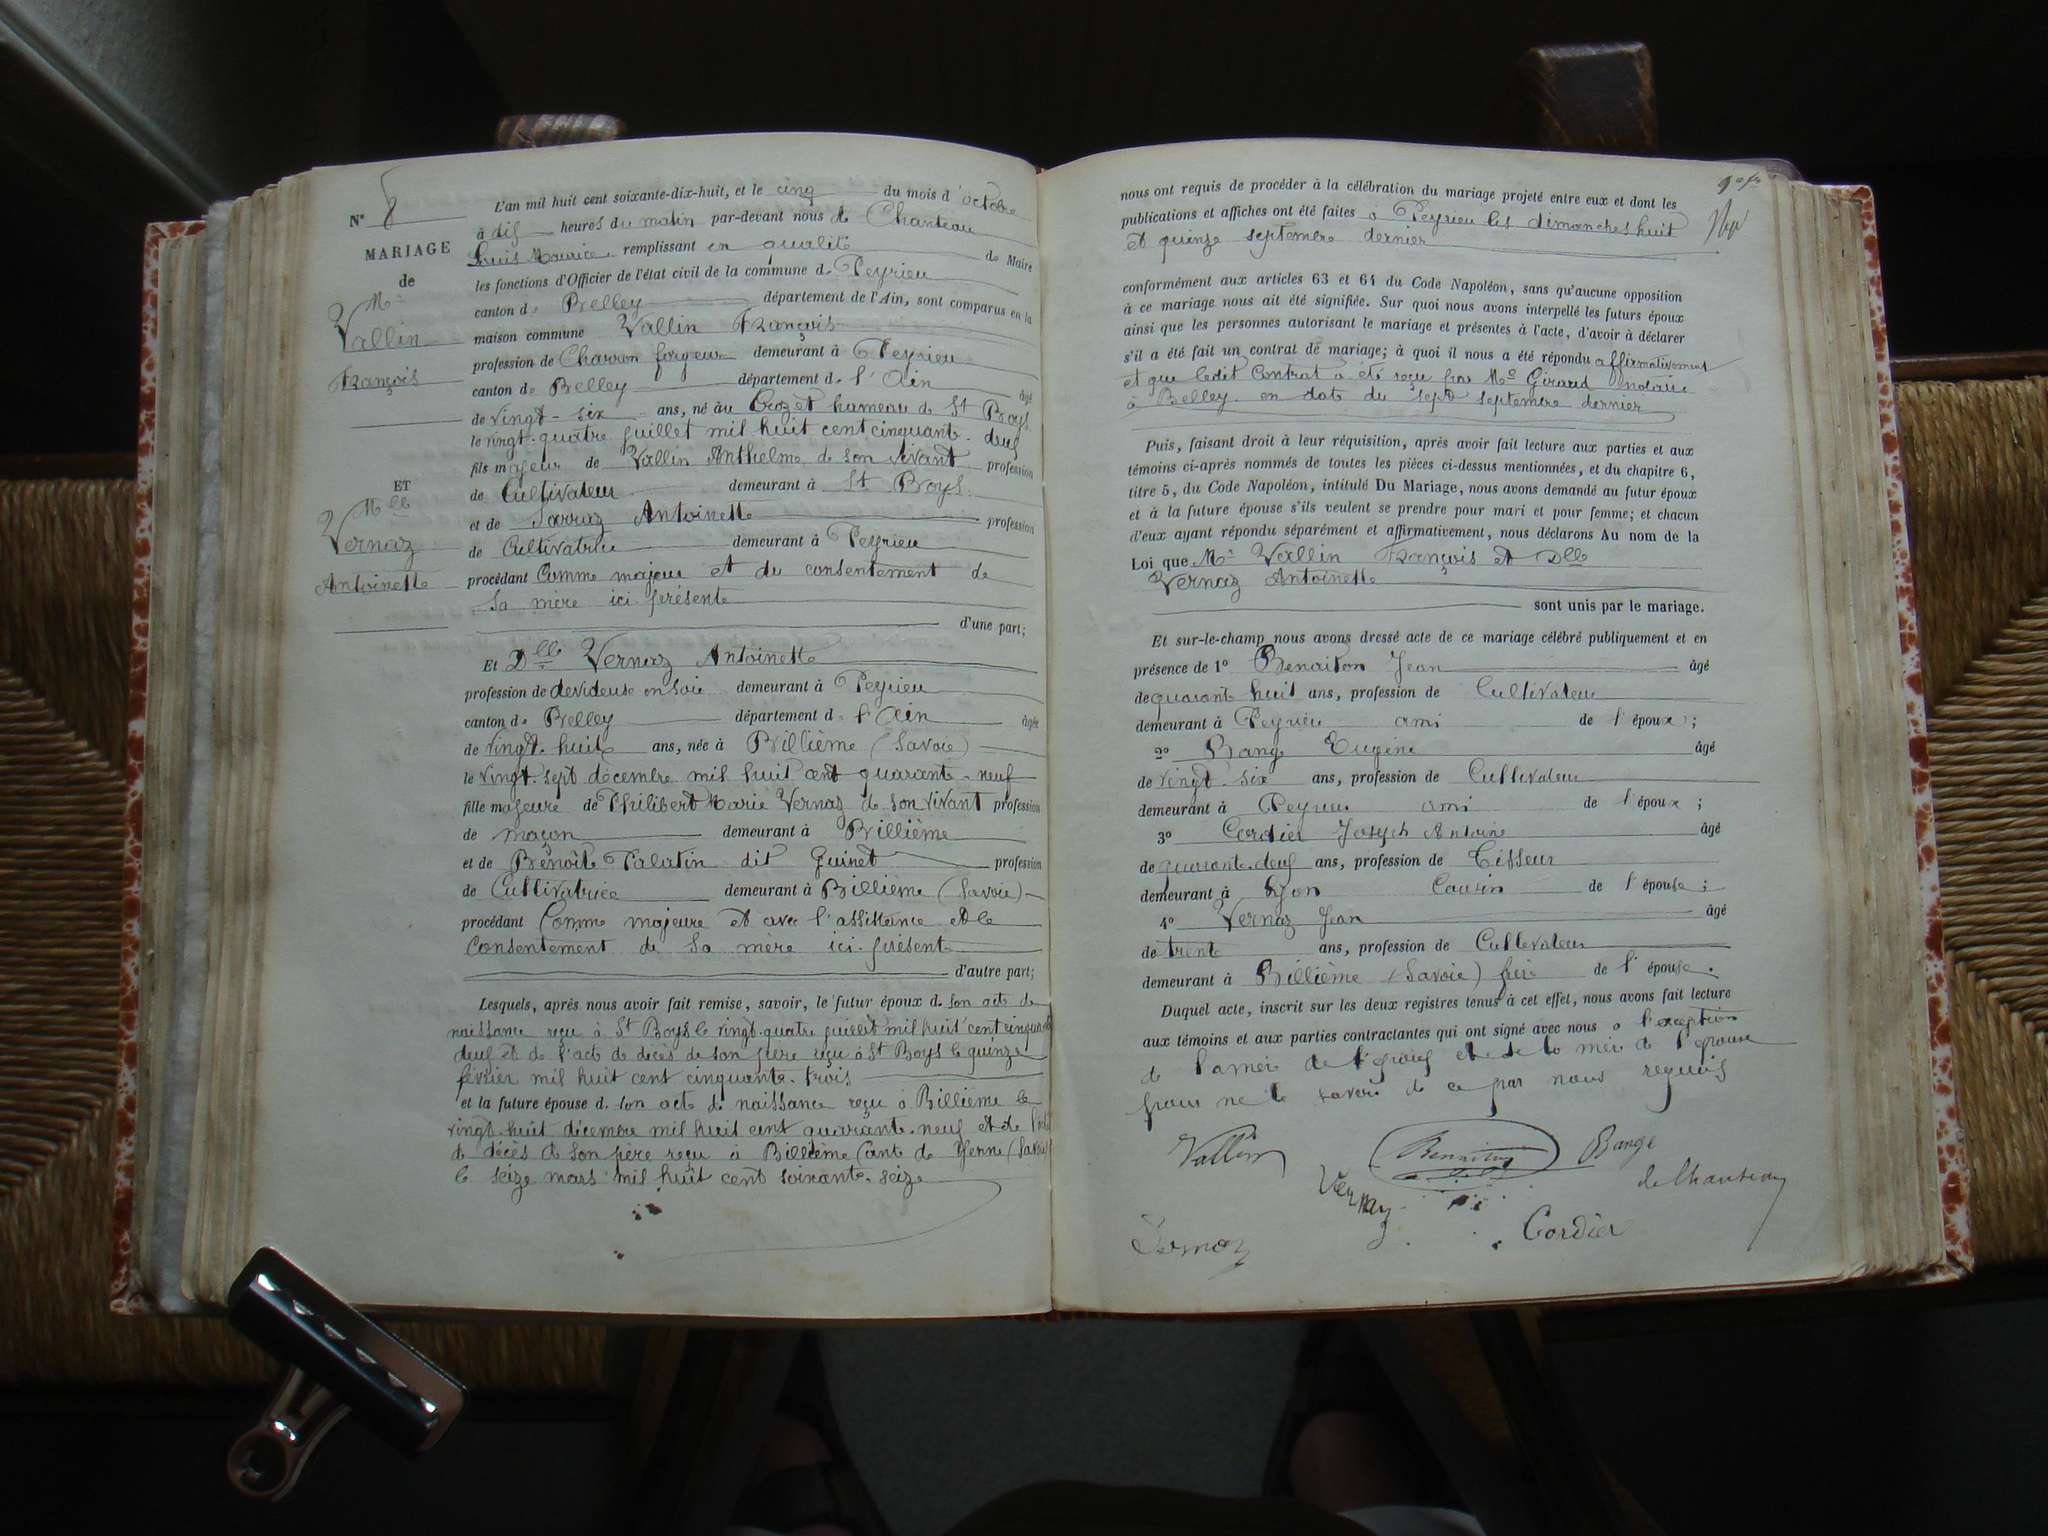 N° 8
MARIAGE
de
Mr
Vallin
François
ET
Mlle
Vernaz
Antoinette
L'an mil huit cent soixante-dix-huit, et le cinq du mois d'octobre
à dix heures du matin par-devant nous de Chanteau
Louis Maurice remplissant en qualité de Maire
les fonctions d'Officier de l'état civil de la commune de Peyrieu
canton de Belley département de l'Ain, sont comparus en la
maison commune Vallin François
profession de Charron forgeur demeurant à Peyrieu
canton de Belley département de l'Ain âgé
de vingt-six ans, né au Crozet hameau de St Boys
le vingt-quatre juillet mil huit cent cinquante-deux
fils majeur de Vallin Anthelme de son vivant profession
de Cultivateur demeurant à St Boys
et de Sarraz Antoinette profession
de Cultivatrice demeurant à Peyrieu
procédant Comme majeur et du consentement de
sa mère ici présente
d'une part;
Et Dlle Vernaz Antoinette
profession de devideuse en soie demeurant à Peyrieu
canton de Belley département de l'Ain âgée
de vingt-huit ans, née à Billième (Savoie)
le vingt-sept décembre mil huit cent quarante-neuf
fille majeure de Philibert Marie Vernaz de son vivant profession
de maçon demeurant à Billième
et de Benoîte Palatin dit Guinet profession
de Cultivatrice demeurant à Billième (Savoie)
procédant Comme majeure et avec l'assistance et le
Consentement de sa mère ici présente
d'autre part;
Lesquels, après nous avoir fait remise, savoir, le futur époux d. son acte de
naissance reçu à St Boys le vingt-quatre juillet mil huit cent cinquante
deux et de l'acte de décès de son père reçu à St Boys le quinze
février mil huit cent cinquante-trois
et la future épouse d. son acte de naissance reçu à Billième le
vingt-huit décembre mil huit cent quarante-neuf et de l'acte
de décès de son père reçu à Billième Cant de Yenne (Savoie)
le seize mars mil huit cent soixante-seize
nous ont requis de procéder à la célébration du mariage projeté entre eux et dont les
publications et affiches ont été faites à Peyrieu les dimanches huit
et quinze septembre dernier
conformément aux articles 63 et 64 du Code Napoléon, sans qu'aucune opposition
à ce mariage nous ait été signifiée. Sur quoi nous avons interpellé les futurs époux
ainsi que les personnes autorisant le mariage et présentes à l'acte, d'avoir à déclarer
s'il a été fait un contrat de mariage; à quoi il nous a été répondu affirmativement
et que ledit Contrat a été reçu par Me Giraud notaire
à Belley en date du sept septembre dernier
Puis, faisant droit à leur réquisition, après avoir fait lecture aux parties et aux
témoins ci-après nommés de toutes les pièces ci-dessus mentionnées, et du chapitre 6,
titre 5, du Code Napoléon, intitulé Du Mariage, nous avons demandé au futur époux
et à la future épouse s'ils veulent se prendre pour mari et pour femme; et chacun
d'eux ayant répondu séparément et affirmativement, nous déclarons Au nom de la
Loi que Mr Vallin François et Dlle
Vernaz Antoinette
sont unis par le mariage.
Et sur-le-champ nous avons dressé acte de ce mariage célébré publiquement et en
présence de 1° Benaiton Jean âgé
de quarante huit ans, profession de Cultivateur
demeurant à Peyrieu ami de l'époux;
2° Bange Eugène âgé
de vingt-six ans, profession de Cultivateur
demeurant à Peyrieu ami de l'époux;
3° Cordier Joseph Antoine âgé
de quarante-deux ans, profession de Tisseur
demeurant à Lyon Cousin de l'épouse;
4° Vernaz Jean âgé
de trente ans, profession de Cultivateur
demeurant à Billième (Savoie) frère de l'épouse.
Duquel acte, inscrit sur les deux registres tenus à cet effet, nous avons fait lecture
aux témoins et aux parties contractantes qui ont signé avec nous à l'exception
de la mère de l'époux et de la mère de l'épouse
pour ne le savoir de ce par nous requis
Vallin
Benaiton
Bange
Vernaz
de Chanteau
Vernaz
Cordier